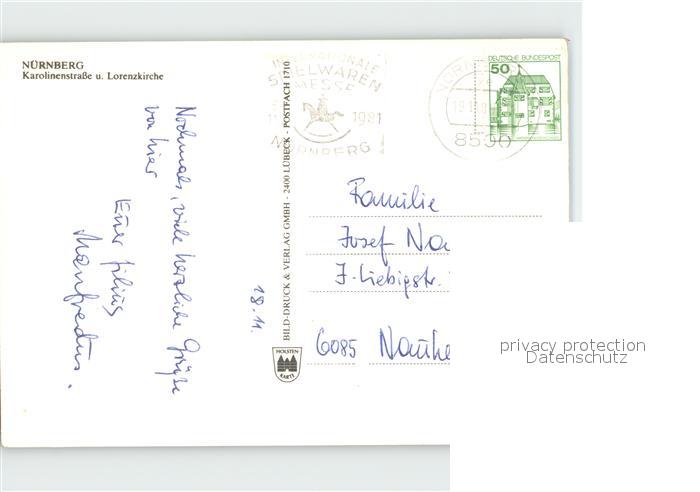 NÜRNBERG
Karolinenstraße u. Lorenzkirche
Nochmals, viele herzliche Grüße
von hier
Euer filius
Manfredus.
18.11.
BILD-DRUCK & VERLAG GMBH - 2400 LÜBECK - POSTFACH 1710
HOLSTEN
KARTE
INTERNATIONALE
SPIELWAREN
MESSE
1981
NÜRNBERG
8500
DEUTSCHE BUNDESPOST
50
Familie
Josef Na
J-Liebigstr.
6085 Nauhe
privacy protection
Datenschutz